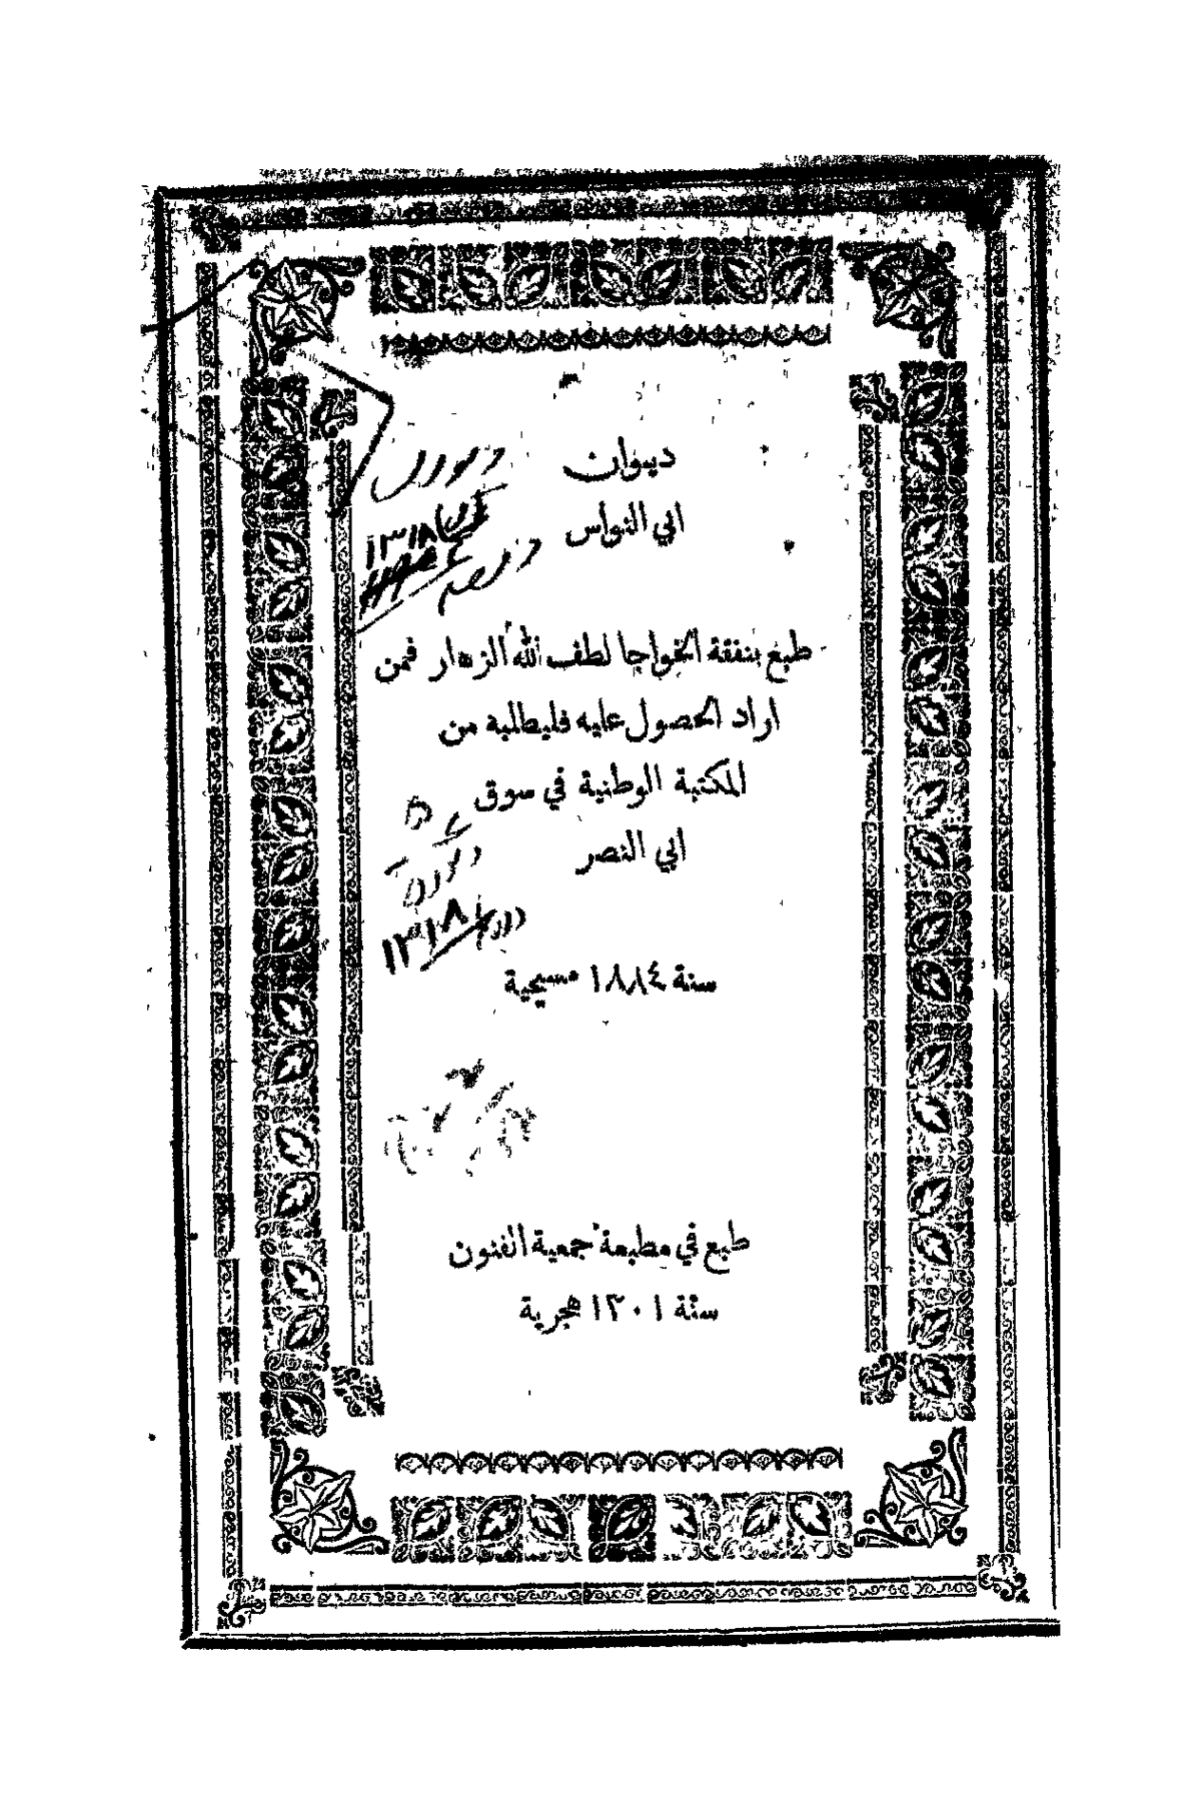 ديوان
ابي النواس
طبع بنفقة الخواجا لطف الله الزهار فمن
اراد الحصول عليه فليطلبه من
المكتبة الوطنية في سوق
ابي النصر
١٣١٨
١٣١٨
سنة ١٨٨٤ مسيحية
طبع في مطبعة جمعية الفنون
سنة ١٣٠١ هجرية